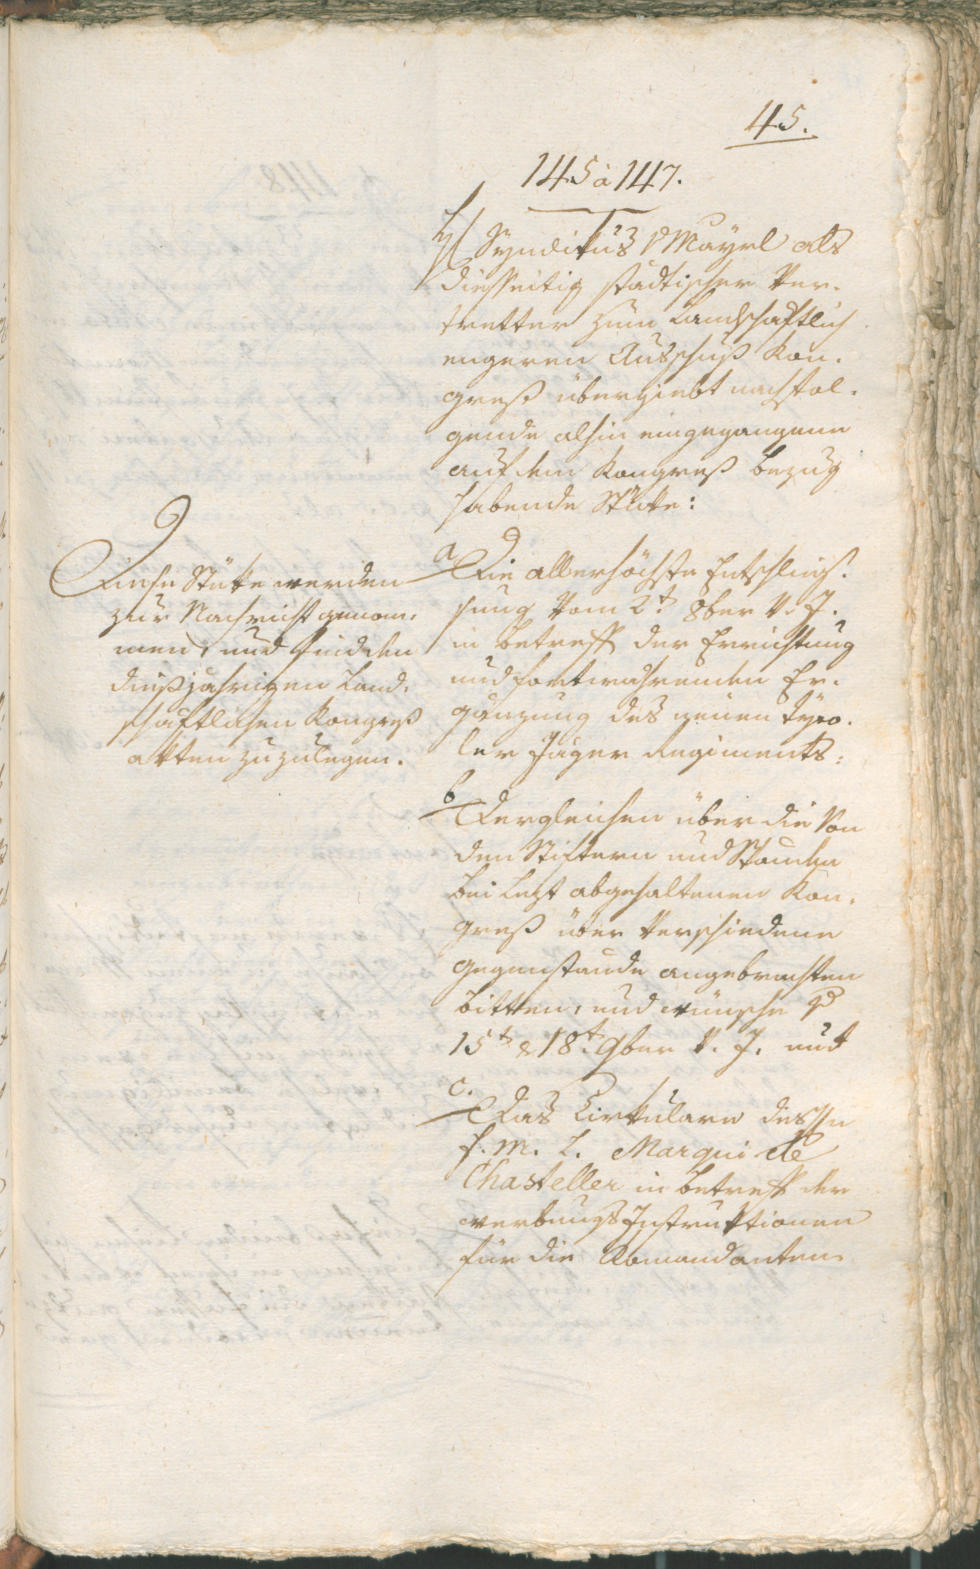 45.
145 à 147.
H Syndikus v Mayrl als
diesseitig städtischer Ver-
tretter zum Landschaftlich
engeren Ausschuß Kon-
greß übergiebt nachfol-
gende alhin eingegangene
auf den Kongreß bezug
habende Stücke:
a Die allerhöchste Entschlies-
sung vom 2t 8ber v. J.
in betreff der Errichtung
und fortwährenden Er-
gänzung des neuen Tyro-
ler Jäger Regiments:
b Dergleichen über die von
den Stiftern und Ständen
bei lezt abgehaltenen Kon-
greß über verschiedene
Gegenstände angebrachten
bitten, und wünsche dd
15t & 18t 9ber v. J. und
c. Das Cirkulare des
F. M. L. Marqui de
Chasteller in betreff der
werbungs Instruktionen
für die Komandanten
Diese Stüke werden
zur Nachricht genom-
men, und sind den
dießjährigen Land-
schaftlichen Kongreß
akten zuzulegen.